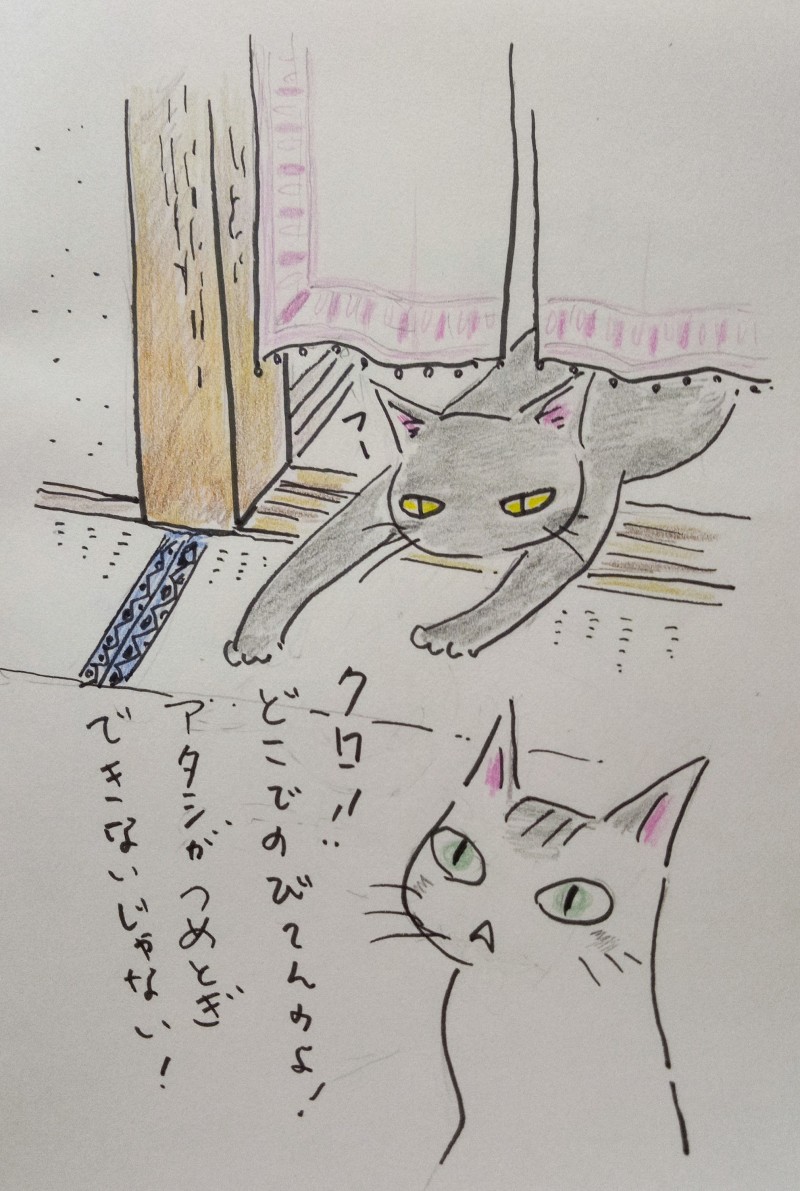 クロ!!
どこでのびてんのよ!
アタシが つめとぎ
できないじゃない!